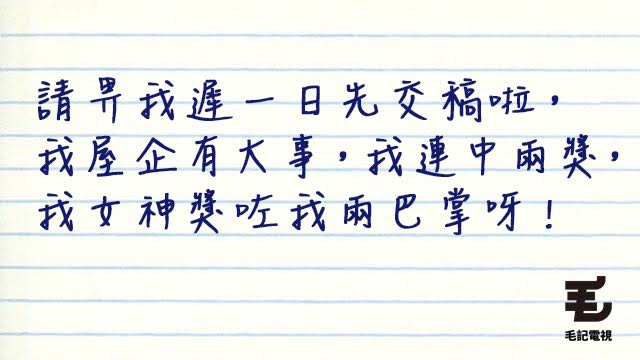 請畀我遲一日先交稿啦，
我屋企有大事，我連中兩獎，
我女神獎咗我兩巴掌呀！
毛記電視